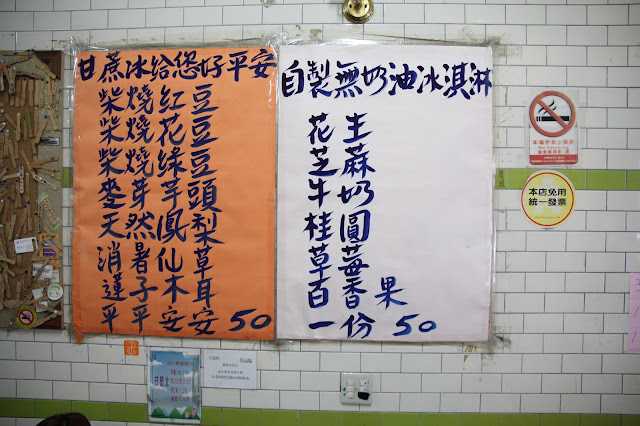 甘蔗冰給您好平安
柴燒紅豆
柴燒花豆
柴燒綠豆
麥芽芋頭
天然鳳梨
消暑仙草
蓮子木耳
平平安安50
自製無奶油冰淇淋
花生
芝蔴
牛奶
桂圓
草莓
百香果
一份50
本場所禁止吸菸
本店免用
統一發票